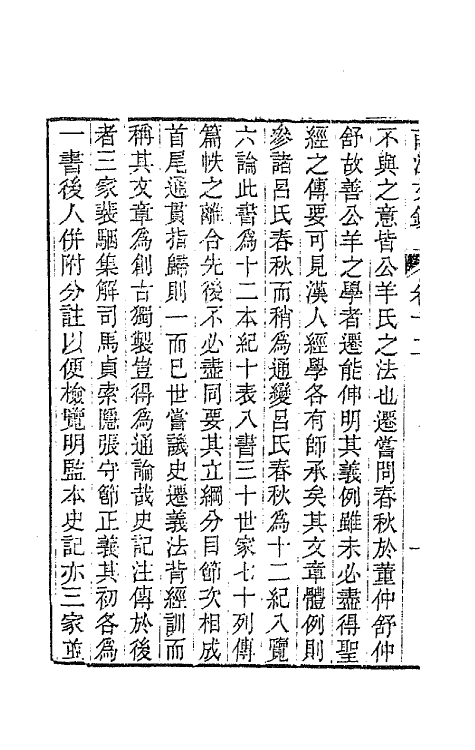 不與之意皆公羊氏之法也遷嘗問春秋於董仲舒仲
舒故善公羊之學者遷能伸明其義例雖未必盡得聖
經之傳要可見漢人經學各有師承矣其文章體例則
參諸呂氏春秋而稍為通變呂氏春秋為十二紀八覽
六論此書為十二本紀十表八書三十世家七十列傳
篇帙之離合先後不必盡同要其立綱分目節次相成
首尾通貫指歸則一而已世嘗譏史遷義法背經訓而
稱其文章為創古獨製豈得為通論哉史記注傳於後
者三家裴駰集解司馬貞索隱張守節正義其初各為
一書後人併附分註以便檢覽明監本史記亦三家並